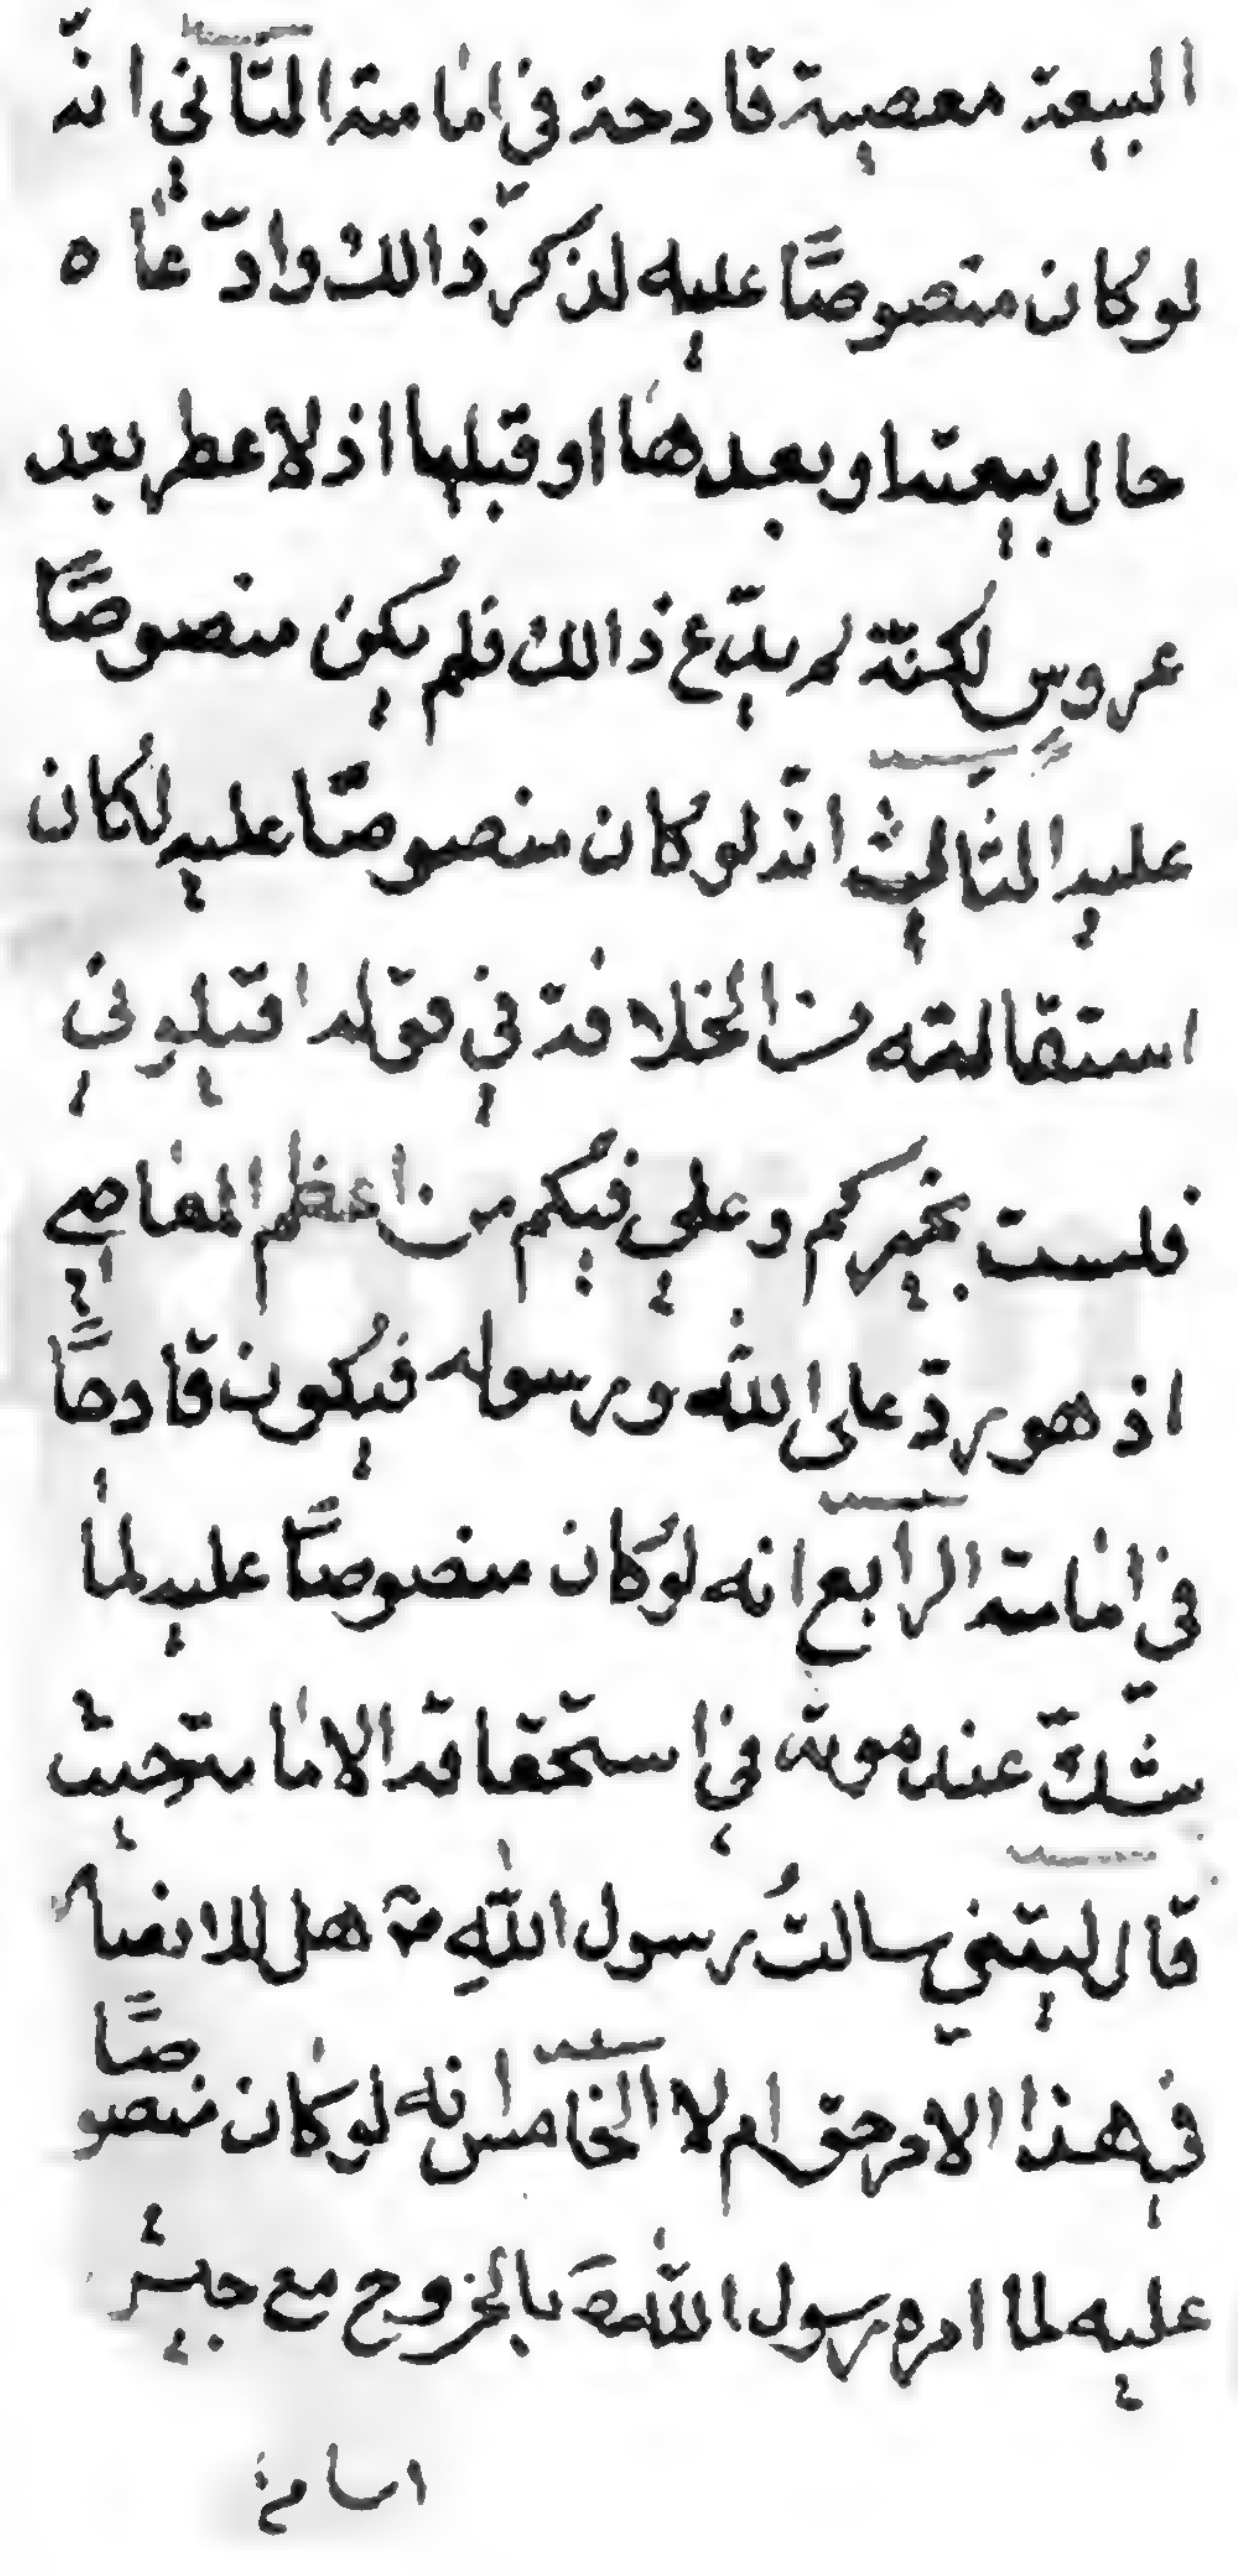 البيعة معصية قادحة في امامته الثاني انه
لو كان منصوصًا عليه لذكر ذالك وادّعاه
حال بيعته او بعدها او قبلها اذ لا عطر بعد
عروس لكنّه لم يدّع ذالك فلم يكن منصوصًا
عليه الثالث انّه لو كان منصوصًا عليه لكان
استقالته من الخلافة في قوله اقيلوني
فلست بخيركم وعلي فيكم من اعظم المعاصي
اذ هو ردّ على الله ورسوله فيكون قادحًا
في امامته الرابع انه لو كان منصوصًا عليه لما
شكّ عند موته في استحقاقه الامامة حيث
قال ليتني سالتُ رسول اللهِ ص هل للانصار
في هذا الامر حق ام لا الخامس انه لو كان منصوصًا
عليه لما امره رسول الله ص بالخروج مع جيش
اسامة